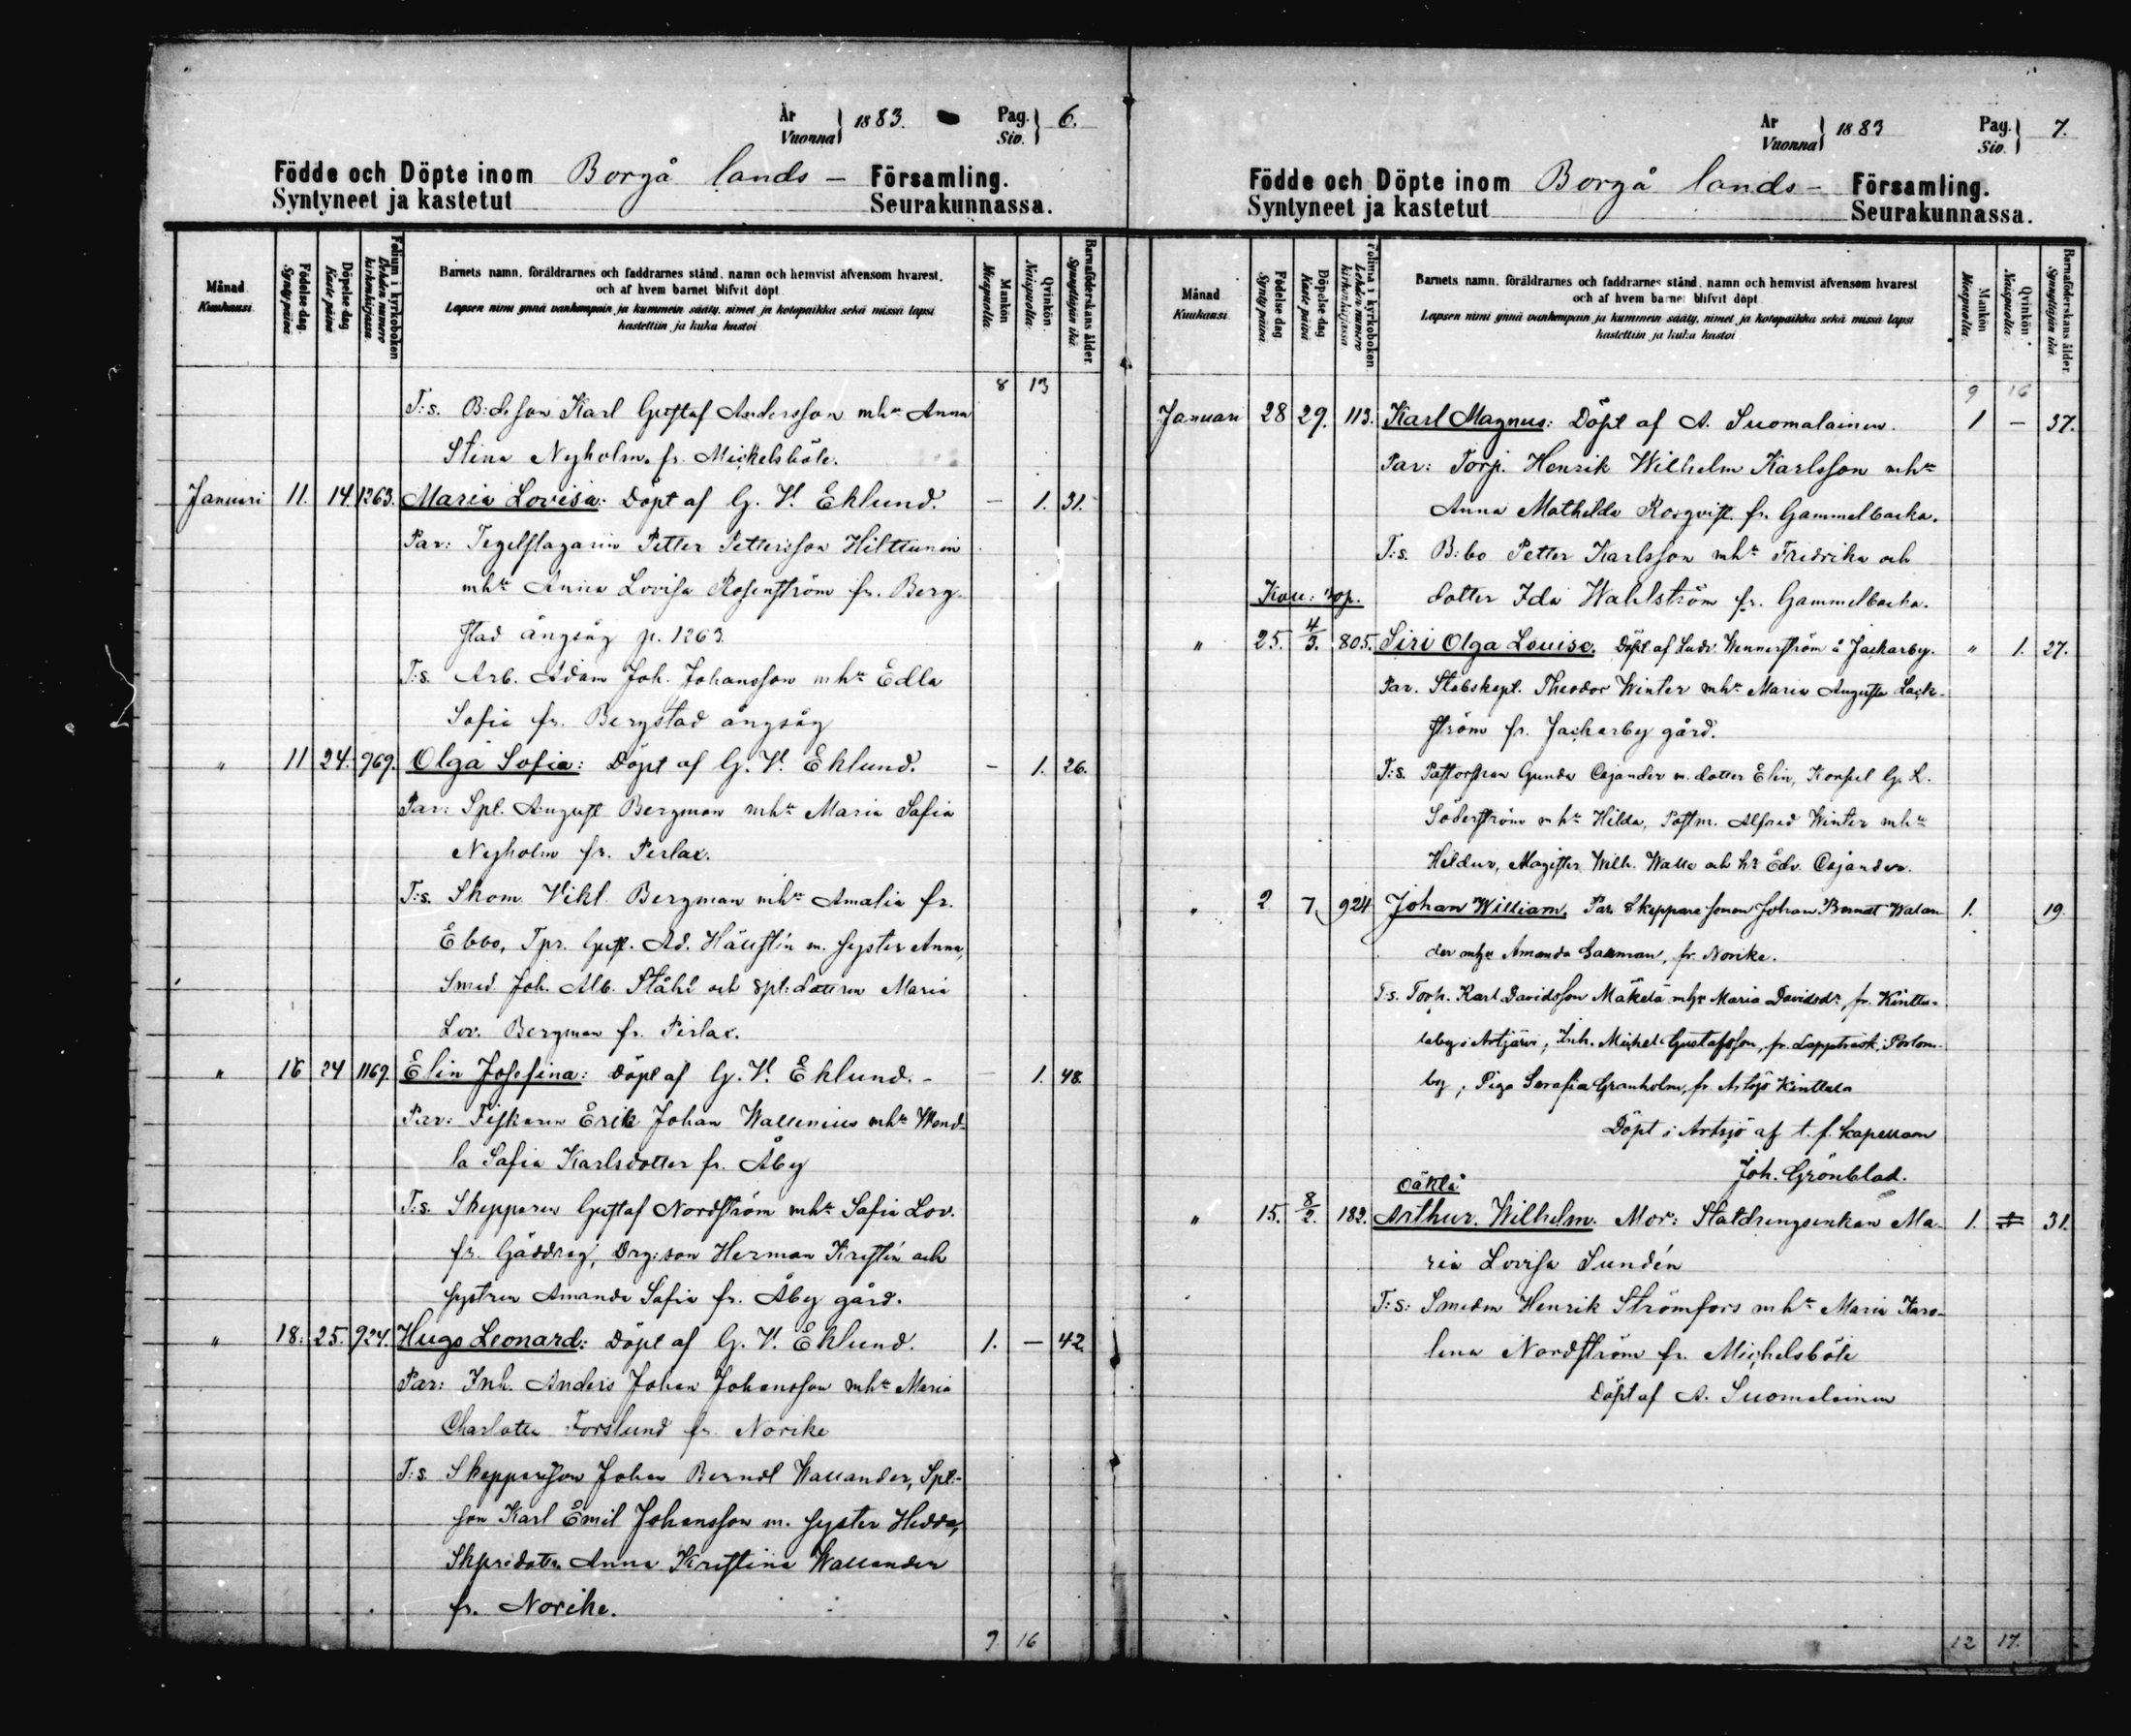 År Vuonna } 1883. Pag. Siv. } 6.
Födde och Döpte inom Borgå lands - Församling.
Syntyneet ja kastetut Seurakunnassa.
Månad Kuukausi
Födelse-dag. Synty-päivä
Döpelse-dag Kaste-päivä
Folium i kyrkoboken Lehden numero kirkonkirjassa
Barnets namn, föräldrarnes och faddrarnes stånd, namn och hemvist äfvensom hvarest,
och af hvem barnet blifvit döpt
Lapsen nimi ynnä vanhempain ja kummein sääty, nimet ja kotopaikka sekä missä lapsi
kastettiin ja kuka kastoi
Mankön Miespuolia.
Qvinkön Naispuolia.
Barnaföderskans ålder. Synnyttäjän ikä.
8 13
T:s. B:de son Karl Gustaf Andersson mhu Anna
Stina Nyholm fr. Mickelsböle.
Januari 11. 14. 1263. Maria Lovisa: Döpt af G. V. Eklund. — 1. 31.
Par: Tegelslagarin Petter Pettersson Hilttunin
mhu Anna Lovisa Rosenström fr. Berg-
stad ångsåg p. 1263.
T:s. Arb. Adam Joh. Johansson mhu Edla
Sofia fr. Bergstad ångsåg
" 11 24. 969. Olga Sofia: Döpt af G. V. Eklund. — 1. 26.
Par: Spl. August Bergman mhu Maria Sofia
Nyholm fr. Perlax.
T:s. Skom. Vikt. Bergman mhu Amalia fr.
Ebbo, Tpr. Gust. Ad. Hällstin m. syster Anna,
Smed Joh. Alb. Ståhl och Spl:dottren Maria
Lov. Bergman fr. Perlax.
" 16 24 1169. Elin Josefina: Döpt af G. V. Eklund. — 1. 48.
Par: Fiskaren Erik Johan Wallenius mhu Wend-
la Sofia Karlsdotter fr. Åby
T:s. Skepparen Gustaf Nordström mhu Sofia Lov.
fr. Gäddrag, Drg:son Herman Kristin och
systren Amanda Sofia fr. Åby gård.
" 18. 25. 924. Hugo Leonard: Döpt af G. V. Eklund. 1. — 42.
Par: Inh. Anders Johan Johansson mhu Maria
Charlotta Forslund fr. Norike
T:s. Skepparson Johan Berndt Wallander, Spl:-
son Karl Emil Johansson m. syster Hedda,
Skpredottn Anna Kristina Wallander
fr. Norike.
9 16
År Vuonna } 1883 Pag. Siv. } 7.
Födde och Döpte inom Borgå lands - Församling.
Syntyneet ja kastetut Seurakunnassa.
Månad Kuukausi.
Födelse dag Synty päivä.
Döpelse-dag Kaste päivä
Folium i kyrkoboken Lehden numero kirkonkirjassa
Barnets namn, föräldrarnes och faddrarnes stånd, namn och hemvist äfvensom hvarest
och af hvem barnet blifvit döpt
Lapsen nimi ynnä vanhempain ja kummein sääty, nimet ja kotopaikka sekä missä lapsi
kastettiin ja kuka kastoi
Mankön Miespuolia.
Qvinkön Naispuolia.
Barnaföderskans ålder. Synnyttäjän ikä.
9 16
Januari 28 29. 113. Karl Magnus: Döpt af A. Suomalainen. 1 — 37.
Par: Torp. Henrik Wilhelm Karlsson mhu
Anna Mathilda Rosqvist fr. Gammelbacka.
T:s. B:bo Petter Karlsson mhu Fredrika och
dotter Ida Wahlström fr. Gammelbacka.
" 25. 4/3. 805. Siri Olga Louise. Döpt af Ludv. Wennerström å Jackarby. " 1. 27.
Par. Stabskapt. Theodor Winter mhu Maria Augusta Lack-
ström fr. Jackarby gård.
T:s. Pastorskan Gunda Cajander m. dotter Elin, Konsul G. L.
Söderström mhu Hilda, Postm. Alfred Winter mhu
Hildur, Magister Wilh. Walle och hr Edv. Cajander.
" 2 7. 924 Johan William. Par. Skeppare sonen Johan Berndt Walan 1. 19.
der mhu Amanda Sallman, fr. Norike.
T:s. Torp. Karl Davidsson Mäkelä mhu Maria Davidsdr, fr. Kinttu-
laby i Artjärvi, Inh. Michel Gustafsson, fr. Lappträsk, Porlom-
by, Piga Serafia Granholm, fr. Artsjö Kinttula
Döpt i Artsjö af t. f. kapellan
Joh. Grönblad.
oäkta
" 15. 8/2. 182. Arthur Wilhelm. Mor: Statdrengsenkan Ma- 1. 31.
ria Lovisa Sundén
T:s: Smeden Henrik Strömfors mhu Maria Karo-
lina Nordström fr. Michelsböle
Döpt af A. Suomalainen
12 17.